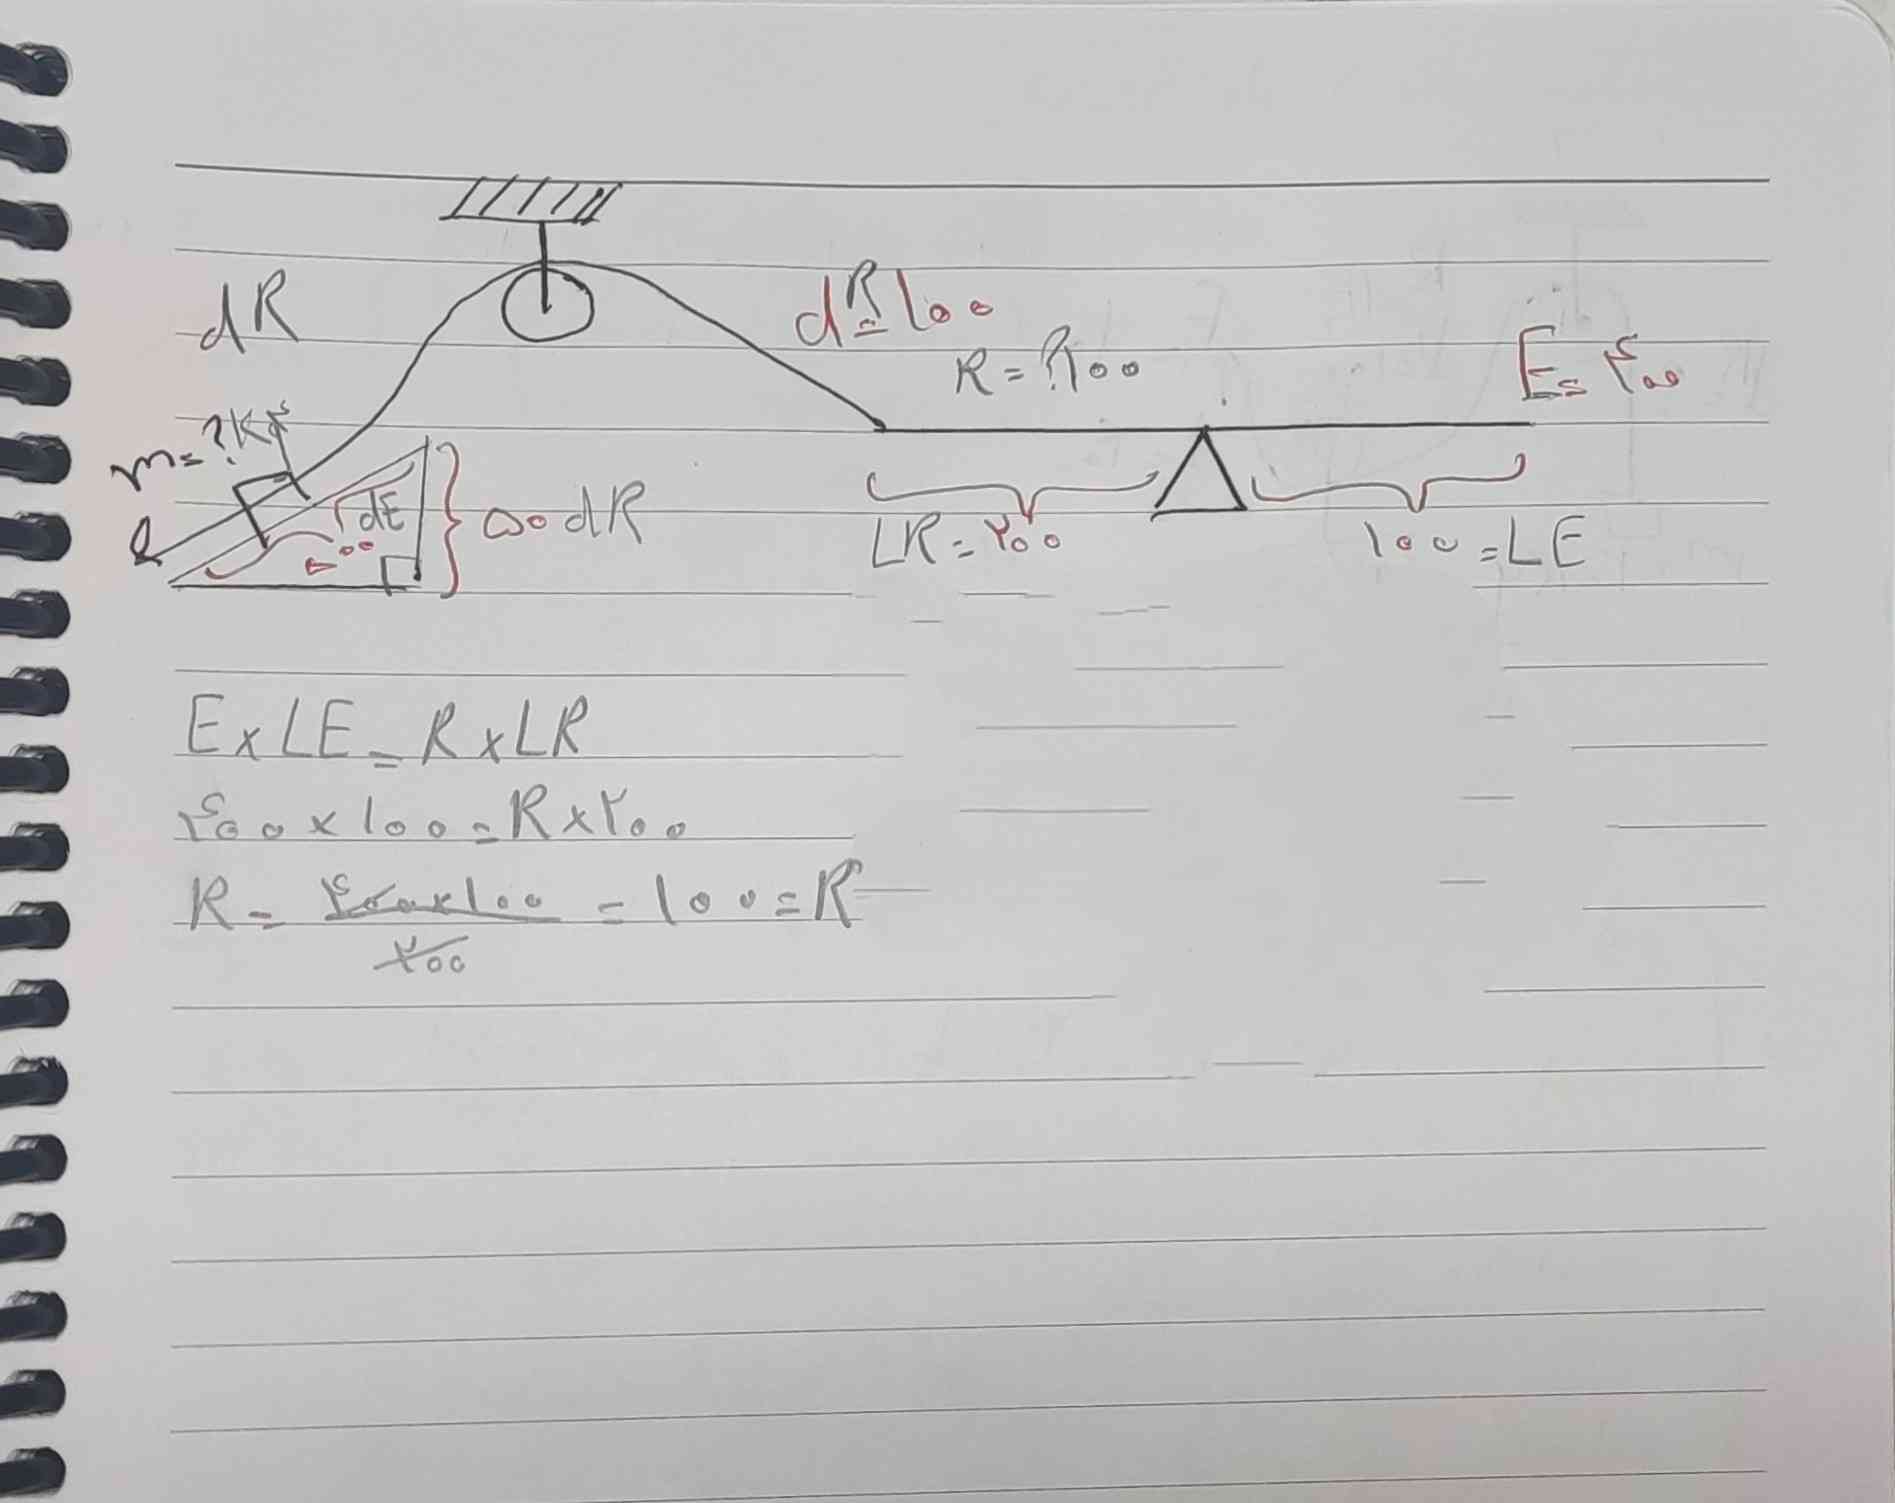 dR
dR=۱۰۰
R=?۱۰۰
E=۴۰۰
m=?Kg
dE
۵۰ dR
LR=۲۰۰
۱۰۰=LE
E×LE=R×LR
۴۰۰×۱۰۰=R×۲۰۰
R=۴۰۰×۱۰۰/۲۰۰=۱۰۰=R